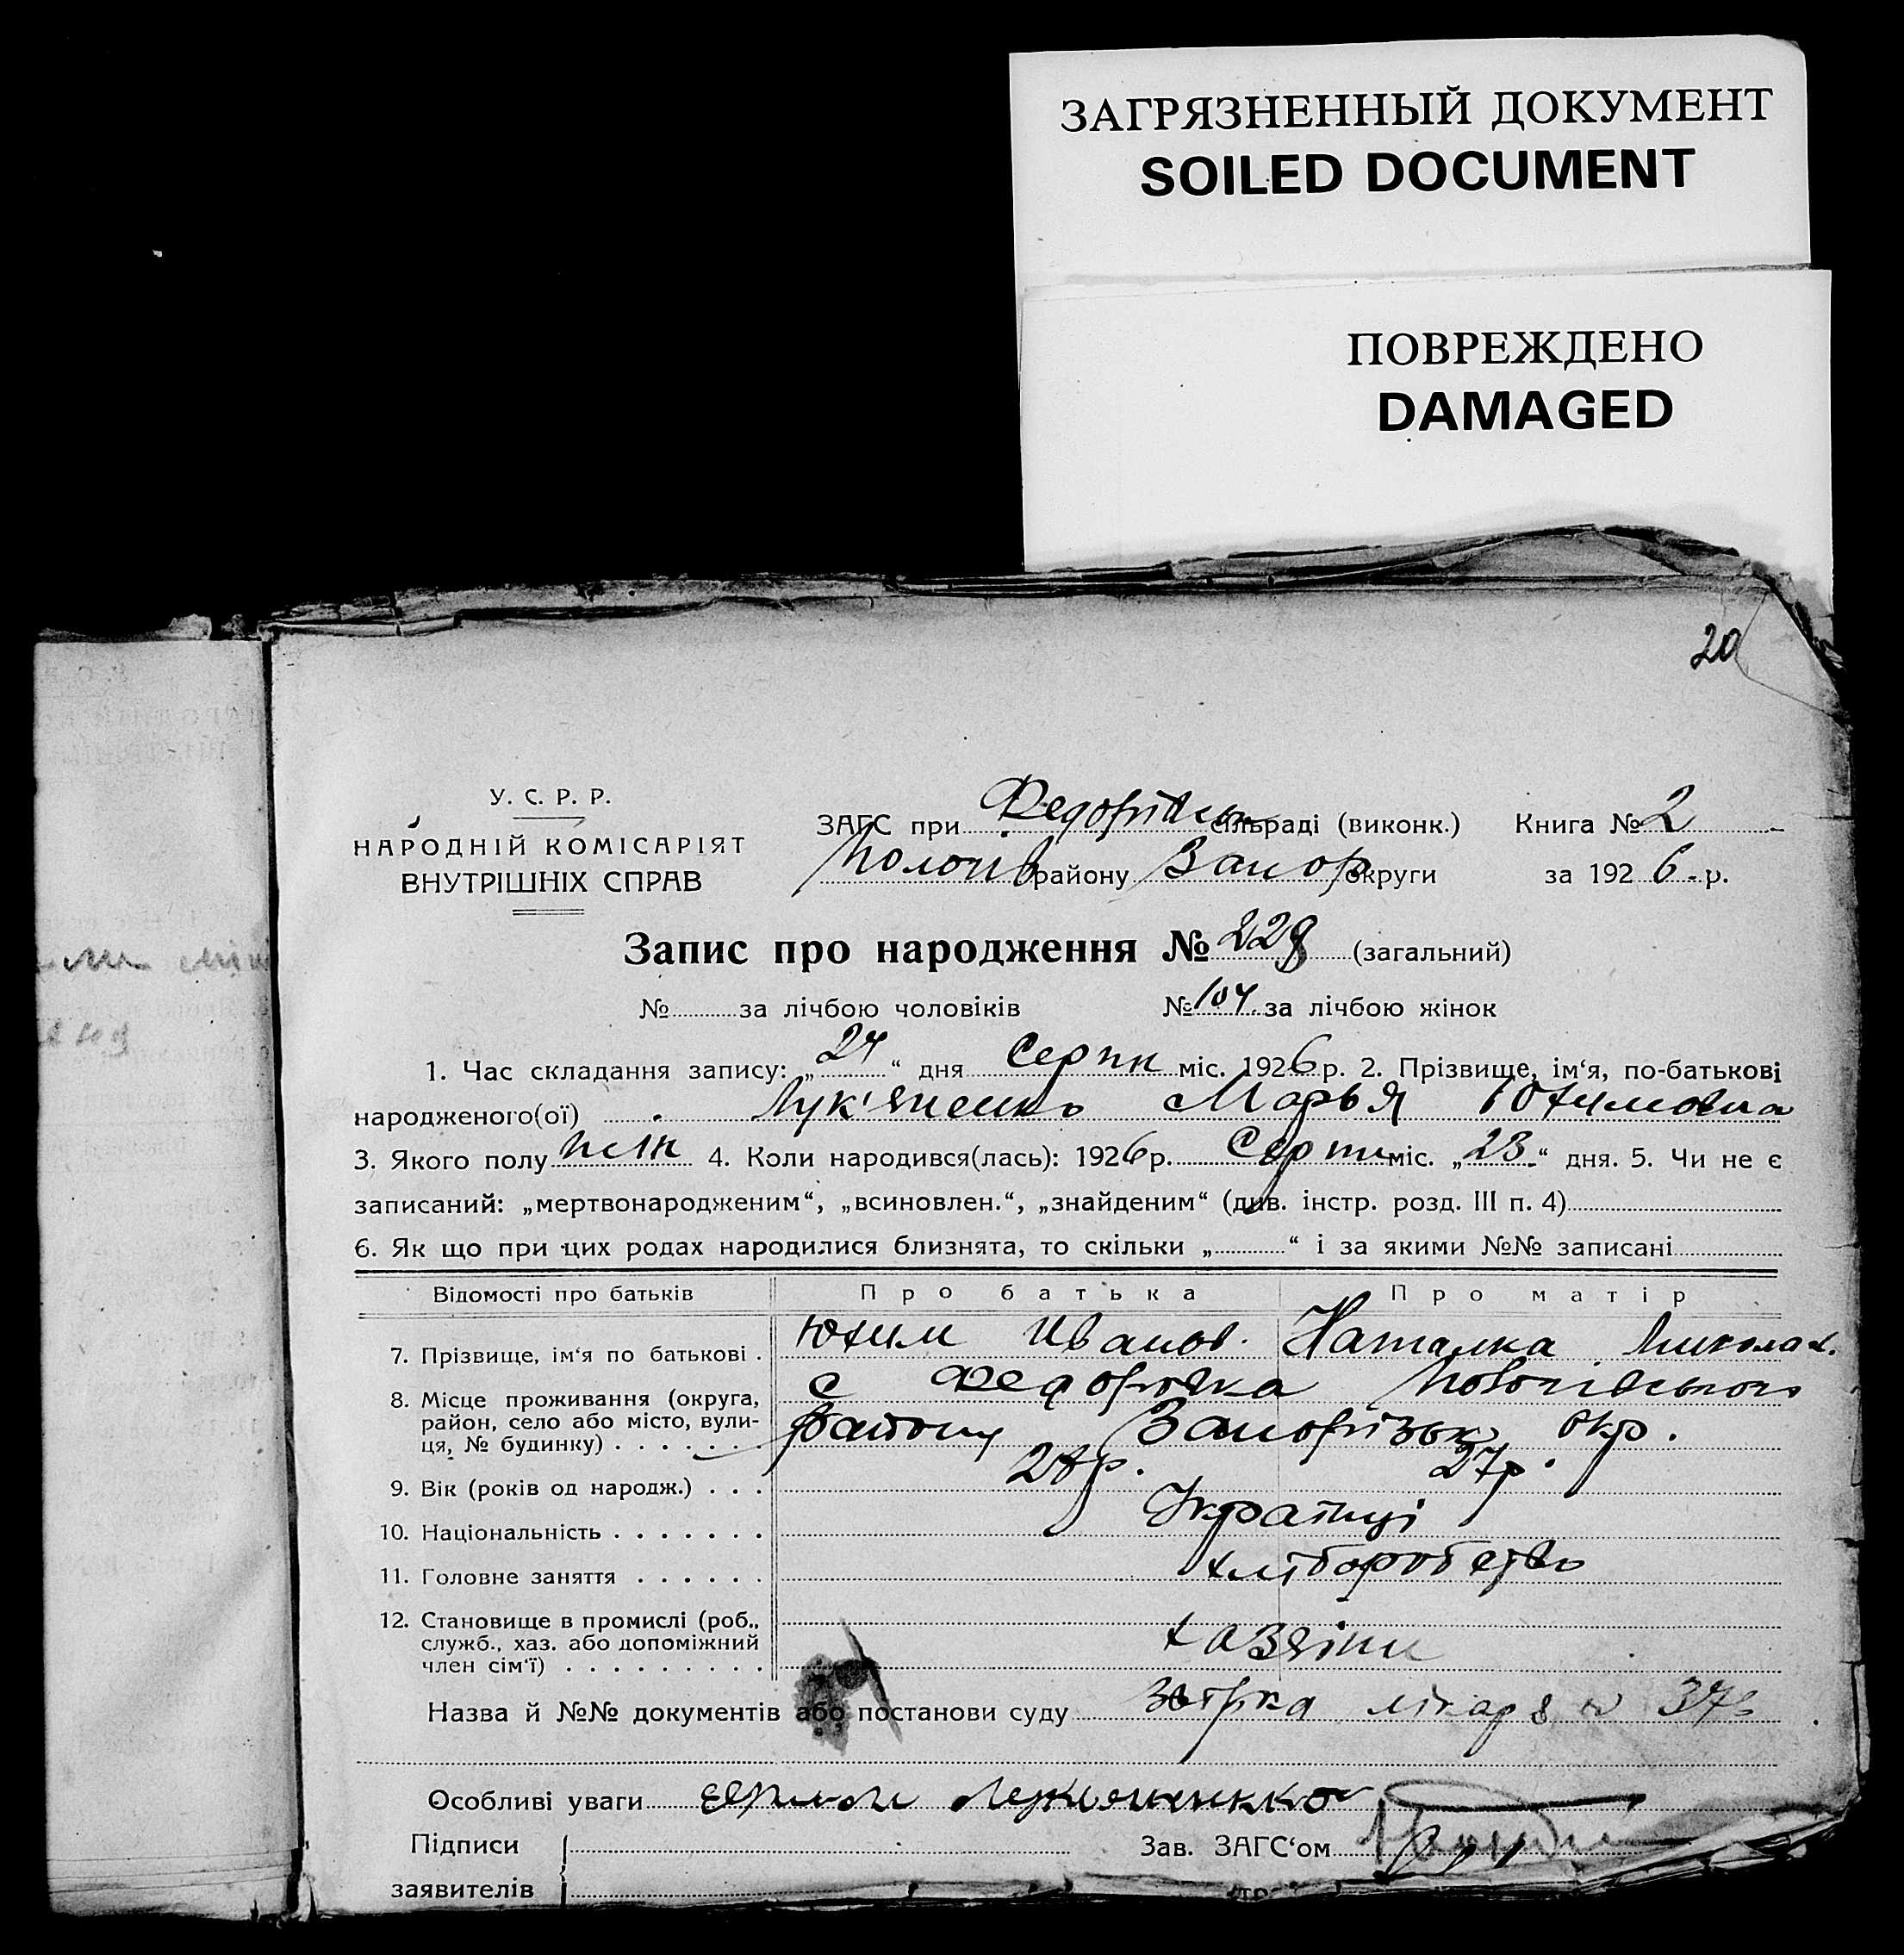 ЗАГРЯЗНЕННЫЙ ДОКУМЕНТ
SOILED DOCUMENT
ПОВРЕЖДЕНО
DAMAGED
20
У. С. Р. Р.
НАРОДНІЙ КОМІСАРІЯТ
ВНУТРІШНІХ СПРАВ
ЗАГС при Федорівськ сільраді (виконк.) Книга № 2
району Запор округи за 1926 р.
Запис про народження № 228 (загальний)
№ за лічбою чоловіків № 104 за лічбою жінок
1. Час складання запису: „24“ дня Серпн міс. 1926 р. 2. Прізвище, ім‘я, по-батькові
народженого(ої) Лук'яненко Марья Юхимовна
3. Якого полу 4. Коли народився(лась): 1926 р. Серпн міс. „23“ дня. 5. Чи не є
записаний: „мертвонародженим“, „всиновлен.“, „знайденим“ (див. інстр. розд. III п. 4)
6. Як що при цих родах народилися близнята, то скільки „ “ і за якими №№ записані
Відомості про батьків Про батька Про матір
7. Прізвище, ім‘я по батькові . Юхим Иванов. Наталка Миколаєв.
8. Місце проживання (округа, с Федорівка
район, село або місто, вули- району Запорізьк окр.
ця, № будинку) . . . . . .
9. Вік (років од народж.) . . . 27р.
10. Національність . . . . . . . Українці
11. Головне заняття . . . . . . хліборобство
12. Становище в промислі (роб.,
служб., хаз. або допоміжний хазяїни
член сім‘ї) . . . . . . . . .
Назва й №№ документів або постанови суду лікаря № 37
Особливі уваги Лукяненкко
Підписи Зав. ЗАГС‘ом
заявителів